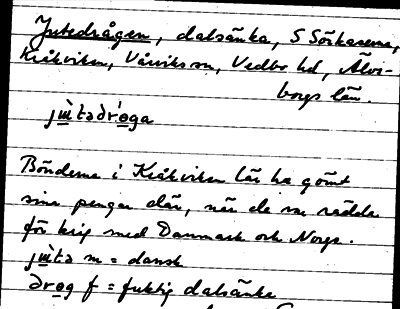 Jutedrågen, dalsänka, S Sörkasarna,
Kråkviken, Vårviks sn, Vedbo hd, Älvs-
borgs län.
jɯ̀tədrɵga
Bönderna i Kråkviken lär ha gömt
sina pengar där, när de var rädda
för krig med Danmark och Norge.
jɯ̀tə m = dansk
drɵg f = fuktig dalsänka